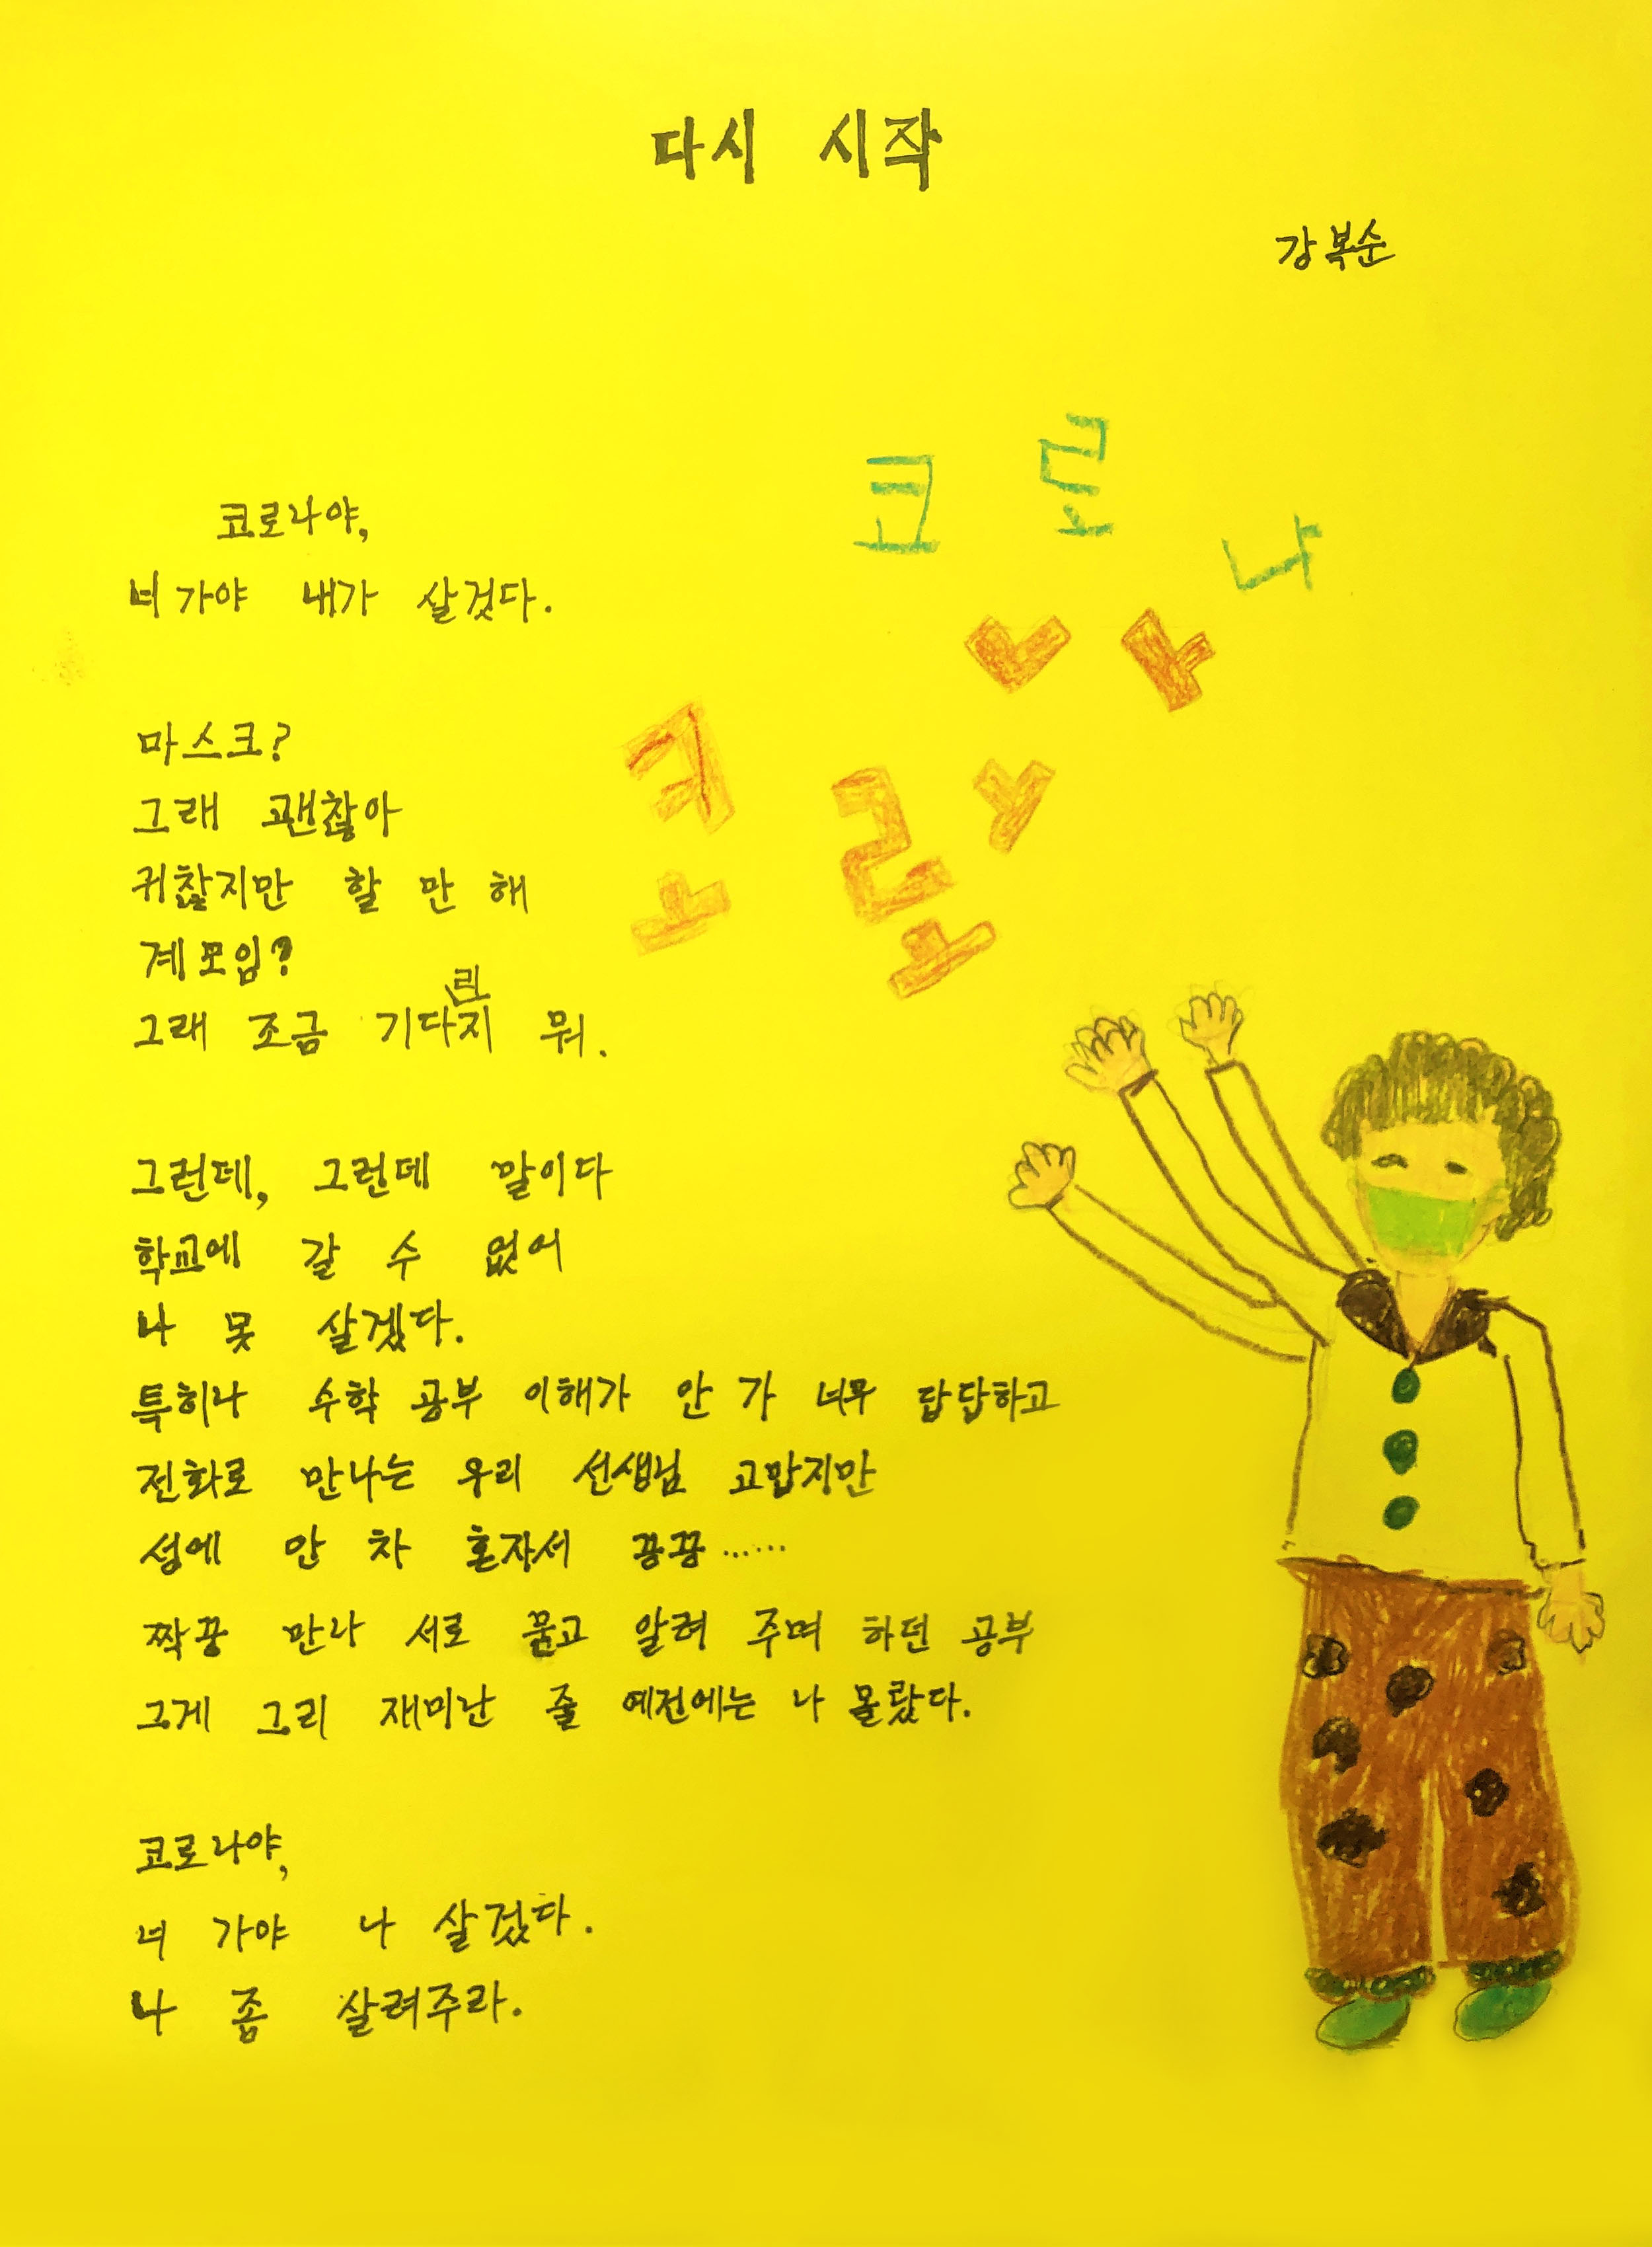 다시 시작
강복순
코로나
코로나
코로나야,
너 가야 내가 살겄다.
마스크?
그래 괜찮아
귀찮지만 할 만 해
계모임?
그래 조금 기다리지 뭐.
그런데, 그런데 말이다
학교에 갈 수 없어
나 못 살겠다.
특히나 수학 공부 이해가 안 가 너무 답답하고
전화로 만나는 우리 선생님 고맙지만
성에 안 차 혼자서 끙끙……
짝꿍 만나 서로 묻고 알려 주며 하던 공부
그게 그리 재미난 줄 예전에는 나 몰랐다.
코로나야,
너 가야 나 살겄다.
나 좀 살려주라.